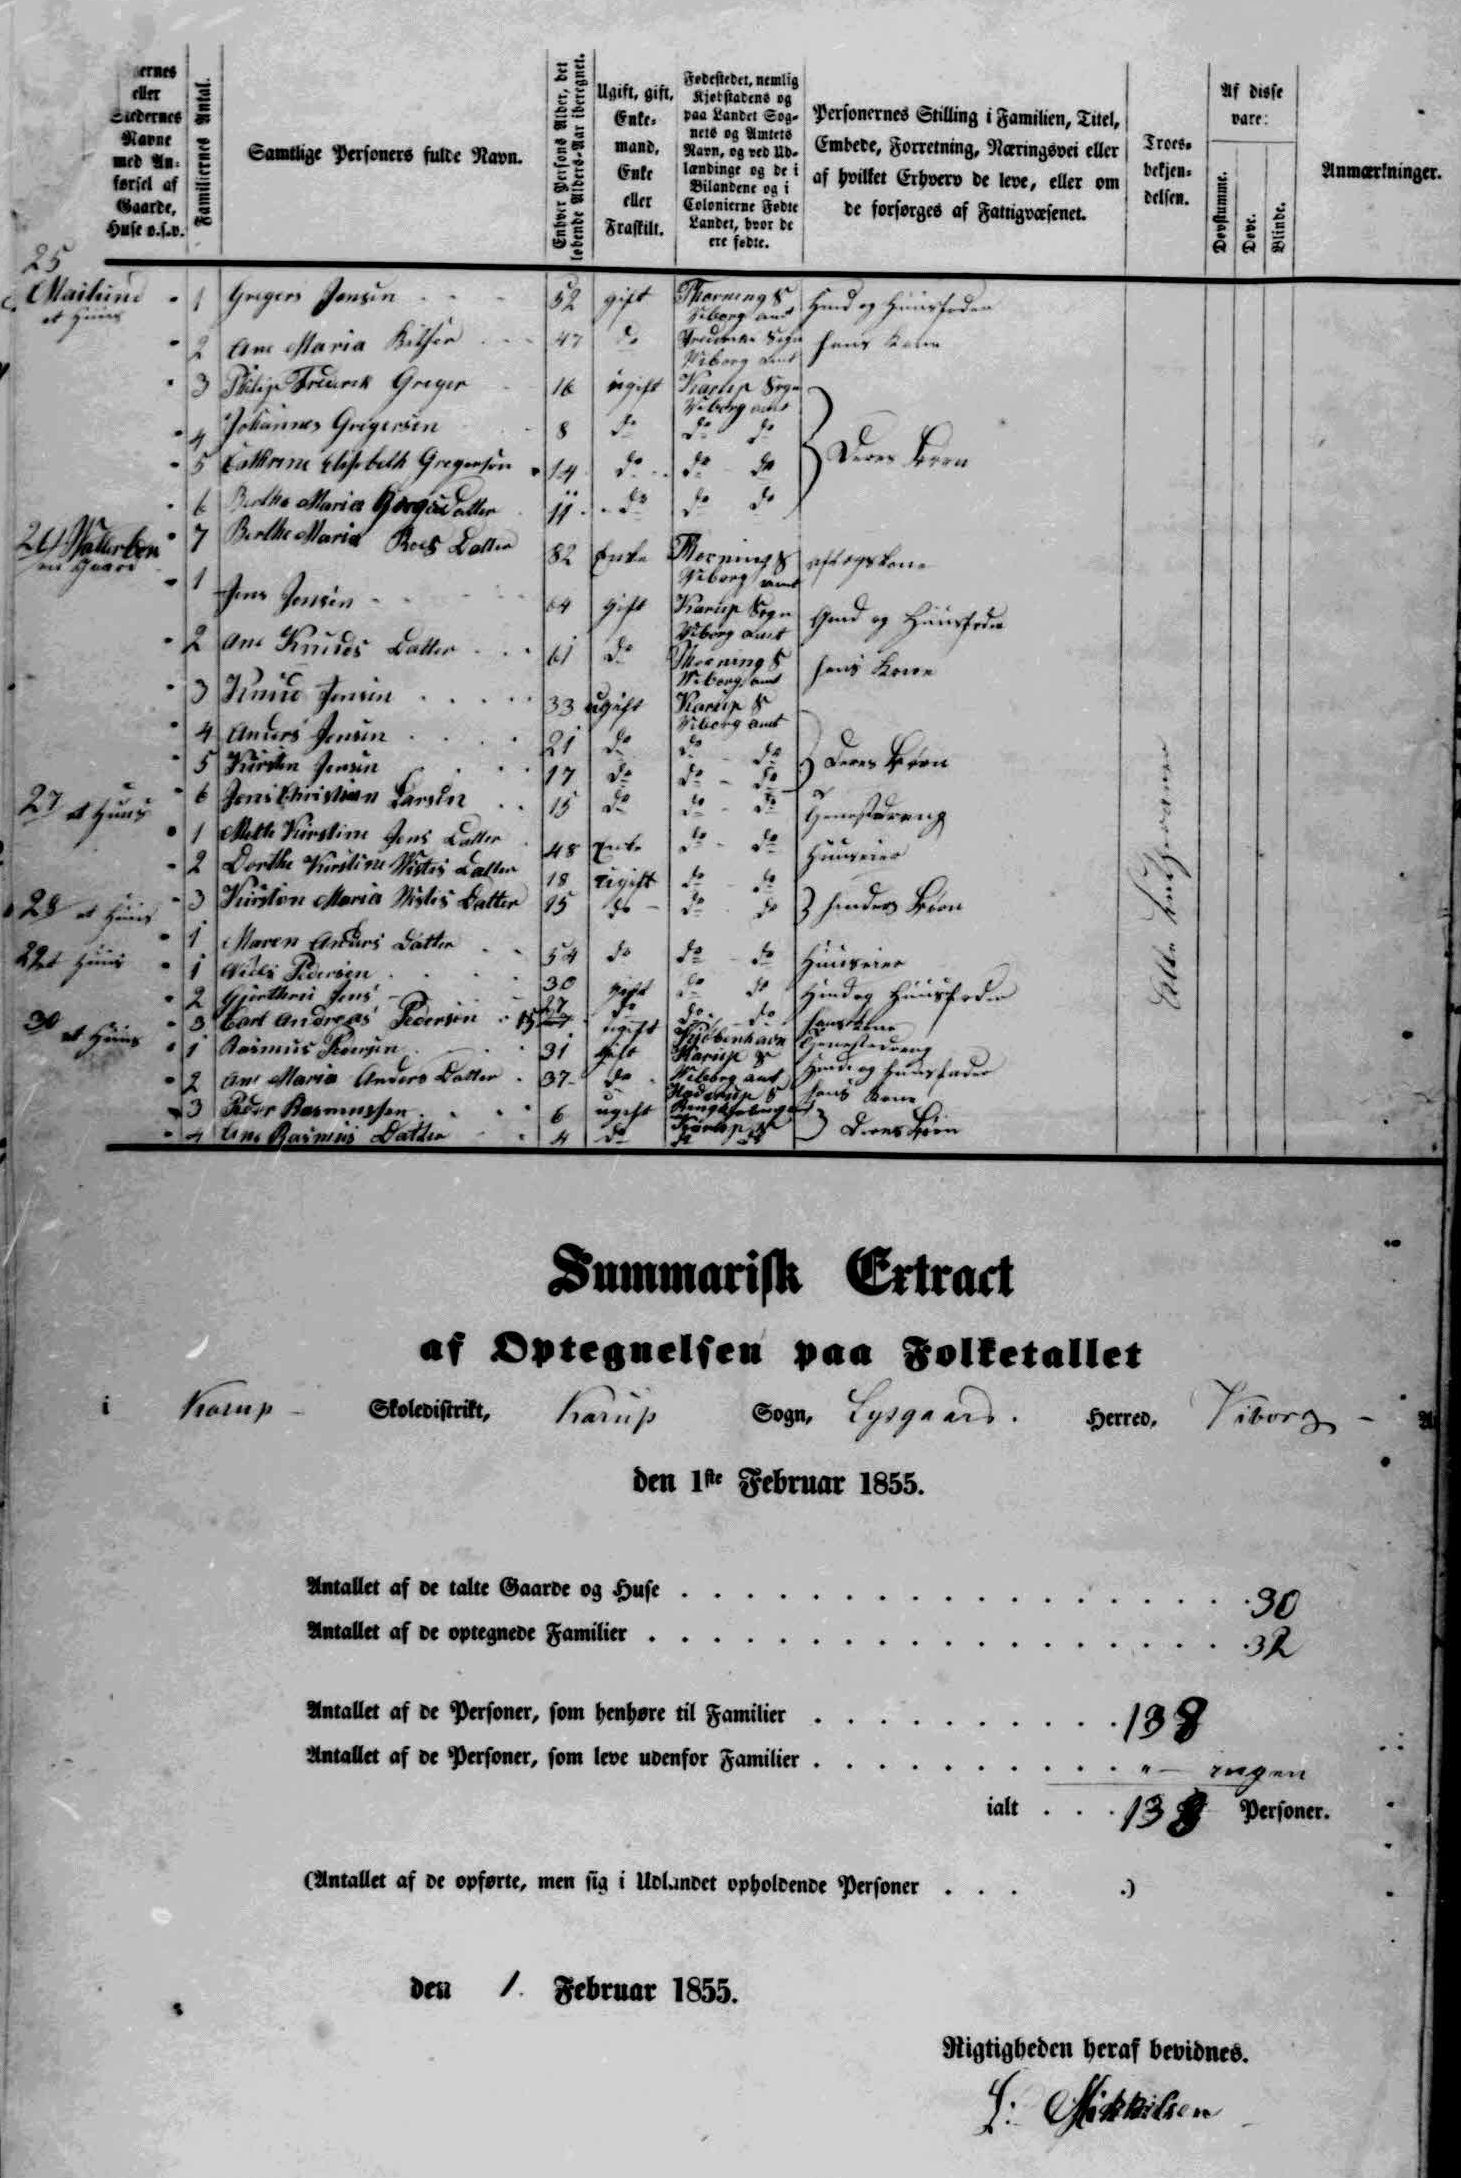 Stedernes Navne med Anførsel af Gaarde, Huse o.s.v.
Familiernes Antal.
Samtlige Personers fulde Navn.
Enhver Persons Alder, det løbende Alders-Aar iberegnet.
Ugift, gift, Enkemand, Enke eller Fraskilt.
Fødestedet, nemlig Kjøbstadens og paa Landet Sognets og Amtets Navn, og ved Udlændinge og de i Bilandene og i Colonierne Fødte Landet, hvor de ere fødte.
Personernes Stilling i Familien, Titel, Embede, Forretning, Næringsvei eller af hvilket Erhverv de leve, eller om de forsørges af Fattigvæsenet.
Troesbekjendelsen.
Af disse vare:
Døvstumme.
Døve.
Blinde.
Anmærkninger.
25 et Huus 1 Gregers Jensen 52 gift Thorning S Viborg amt
2 Ane Maria 47 do Frederiks Sogn Viborg amt hans Kone
3 Philip Frederik Greger 16 ugift Karup Sogn Viborg amt
4 Johannes Gregersen 8 do do do Deres Børn
5 Cathrine Elisebeth Gregersen 14 do do do
6 Berthe Maria Datter 11 do do do
7 Berthe Maria Datter 82 Enke Thorning S Viborg amt aftægtskone
en Gaard 1 Jens Jensen 64 gift Karup Sogn Viborg amt
2 Ane Knuds Datter 61 do Thorning S Viborg amt hans Kone
3 Knud Jensen 33 ugift Karup S Viborg amt
4 Anders Jensen 21 do do do Deres Børn
5 Kirsten Jensen 17 do do do
6 Jens Christian Larsen 15 do do do
27 et Huus 1 Mette Kirstine Jens Datter 48 Enke do do Huuseier
2 Dorthe Kirstine Datter 18 ugift do do
3 Kirsten Maria Datter 15 do do do hendes Børn
28 et Huus 1 Maren Anders Datter 54 do do do Huuseier
29 et Huus 1 Niels Pedersen 30 gift do do
2 Jens 27 do do do hans Kone
3 Carl Andreas Pedersen 15 ugift Kjøbenhavn
30 et Huus 1 Rasmus 31 gift Karup S Viborg amt
2 Ane Maria Anders Datter 37 do Haderup S hans Kone
3 Peder Rasmussen 6 ugift Karup S
4 Ane Rasmus Datter 4 do do do Deres Børn
Alle
Summarisk Extract
af Optegnelsen paa Folketallet
i Karup Skoledistrikt, Karup Sogn, Lysgaard Herred, Viborg
den 1ste Februar 1855.
Antallet af de talte Gaarde og Huse 30
Antallet af de optegnede Familier 32
Antallet af de Personer, som henhøre til Familier 138
Antallet af de Personer, som leve udenfor Familier " ingen
ialt 138 Personer.
(Antallet af de opførte, men sig i Udlandet opholdende Personer . . . .)
den 1. Februar 1855.
Rigtigheden heraf bevidnes.
Mikkelsen